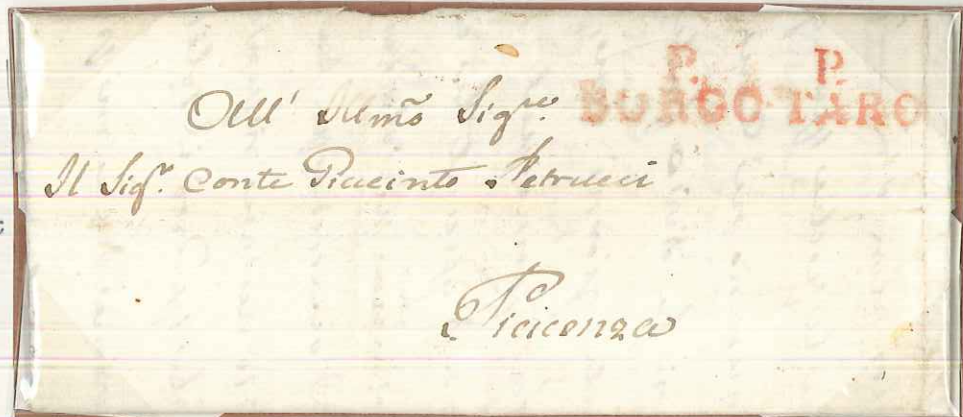 P. P.
BORGO TARO
All' Illmõ Sigre.
Il Sigr. Conte Giacinto Petrucci
Piacenza